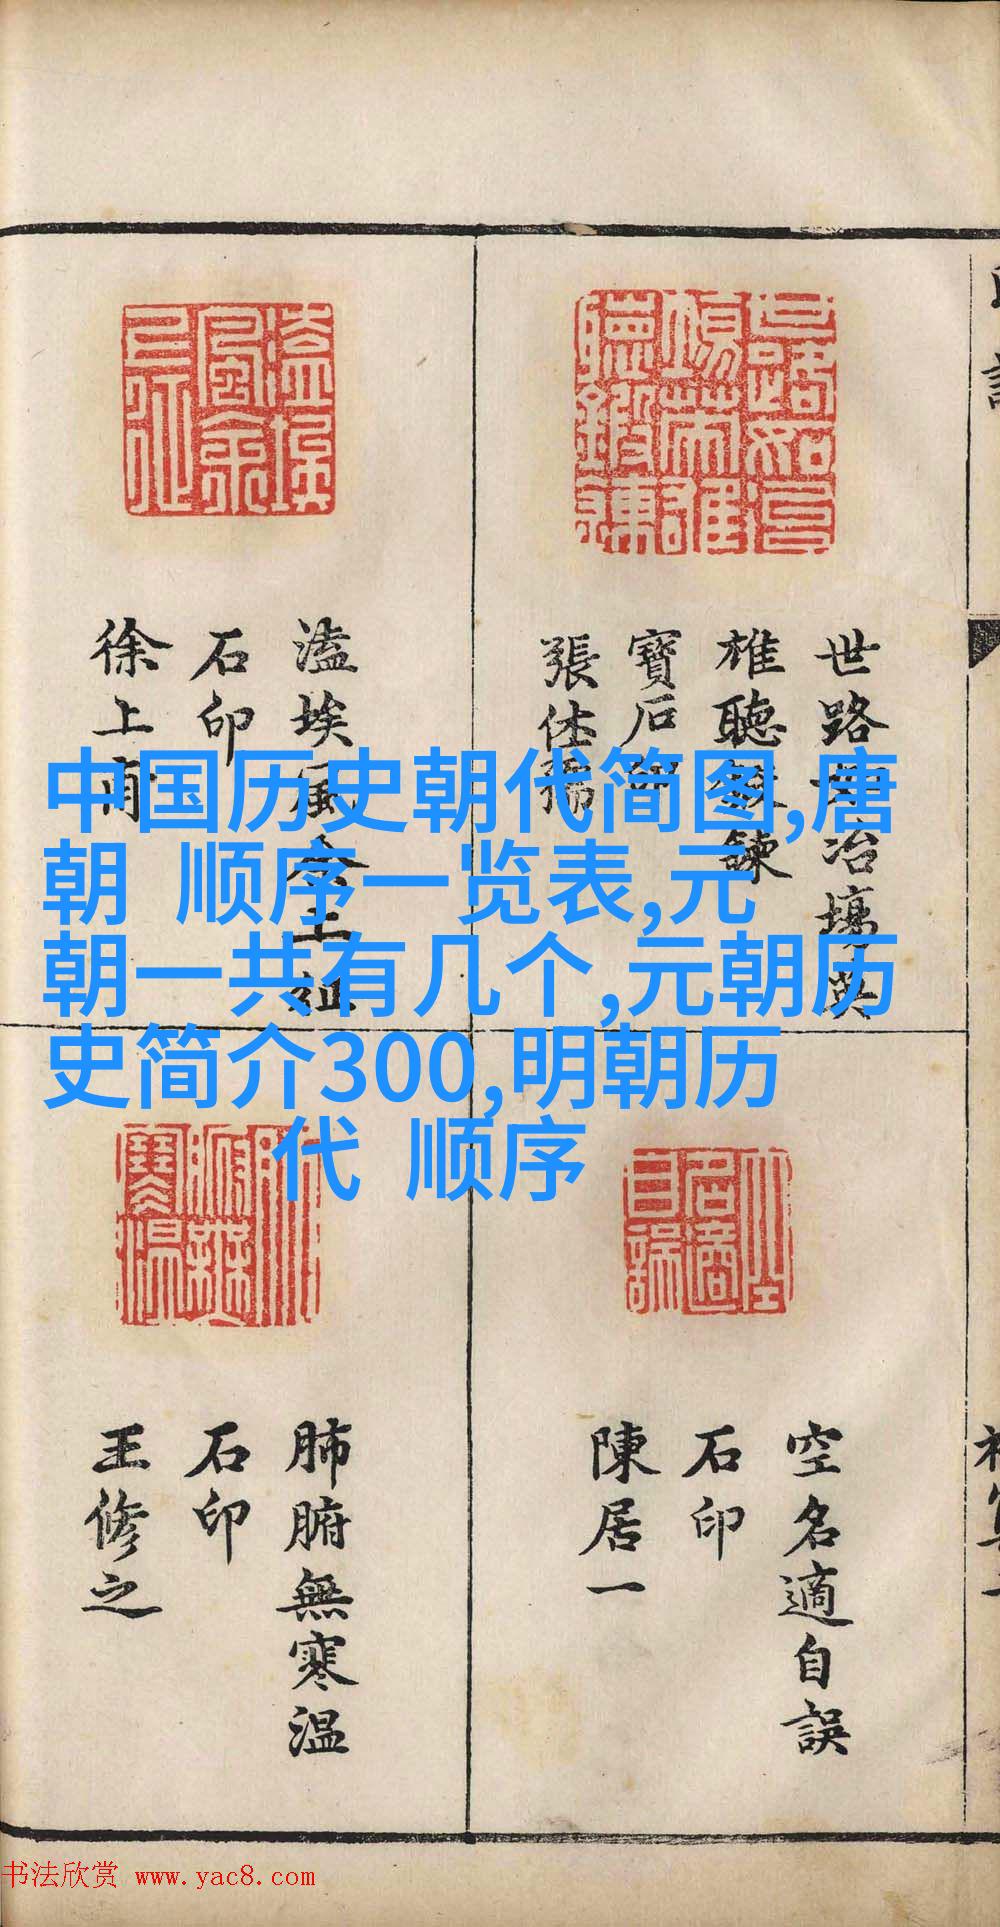 世路如冶場英
雄聽鍛鍊
寶石印
張休孺
溘埃風余上征
石印
徐上甫
中国历史朝代简图,唐
朝 顺序一览表,元
朝一共有几个,元朝历
史简介300,明朝历
代 顺序
空名適自誤
石印
陳居一
肺腑無寒温
石印
王修之
书法欣赏 www.yac8.com